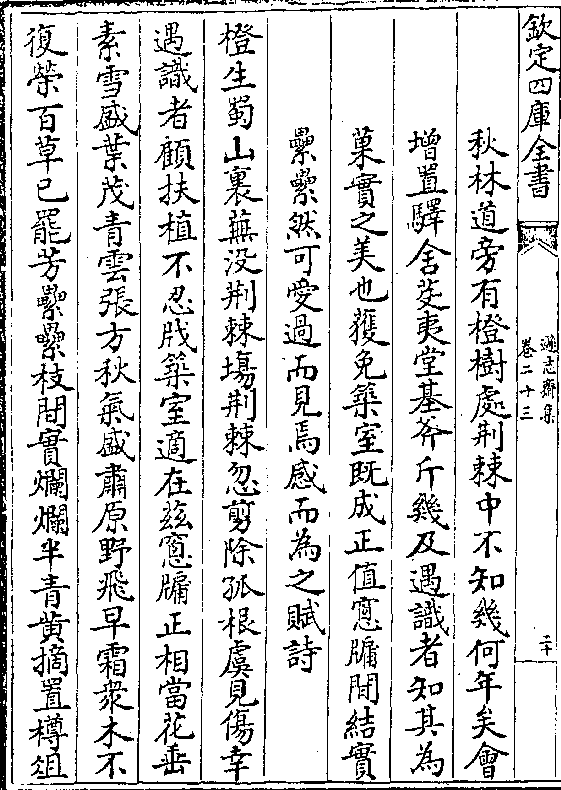 欽定四庫全書
遜志齋集
卷二十三
二十
秋林道旁有橙樹處荆棘中不知幾何年矣會
増置驛舍芟夷堂基斧斤幾及遇識者知其為
菓實之美也獲免築室既成正值窻牖間結實
纍纍然可愛過而見焉感而為之賦詩
橙生蜀山裏蕪没荆棘塲荆棘忽剪除孤根虞見傷幸
遇識者顧扶植不忍戕築室適在兹窻牖正相當花垂
素雪盛葉茂青雲張方秋氣盛肅原野飛早霜衆木不
復榮百草已罷芳纍纍枝間實爛爛半青黄摘置樽俎